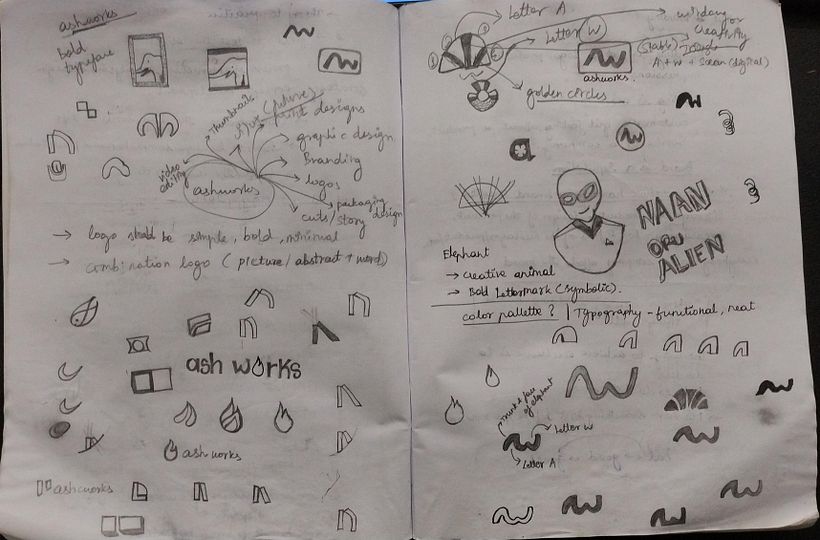 ashworks
bold
typeface
Thumbnails
print designs
graphic design
Branding
logos
packaging
design
cuts/story
video
editing
ashworks
→ logo should be simple, bold, minimal
→ combination logo (picture/abstract + word)
ash works
ashworks
ashworks
Letter A
Letter W
creativity
A + W + Screen (digital)
ashworks.
golden circles
a
NAAN
ORU
ALIEN
Elephant
→ creative animal
→ Bold Lettermark (symbolic).
color pallette ? | Typography - functional, neat
Trunk & face
of elephant
Letter W
Letter A